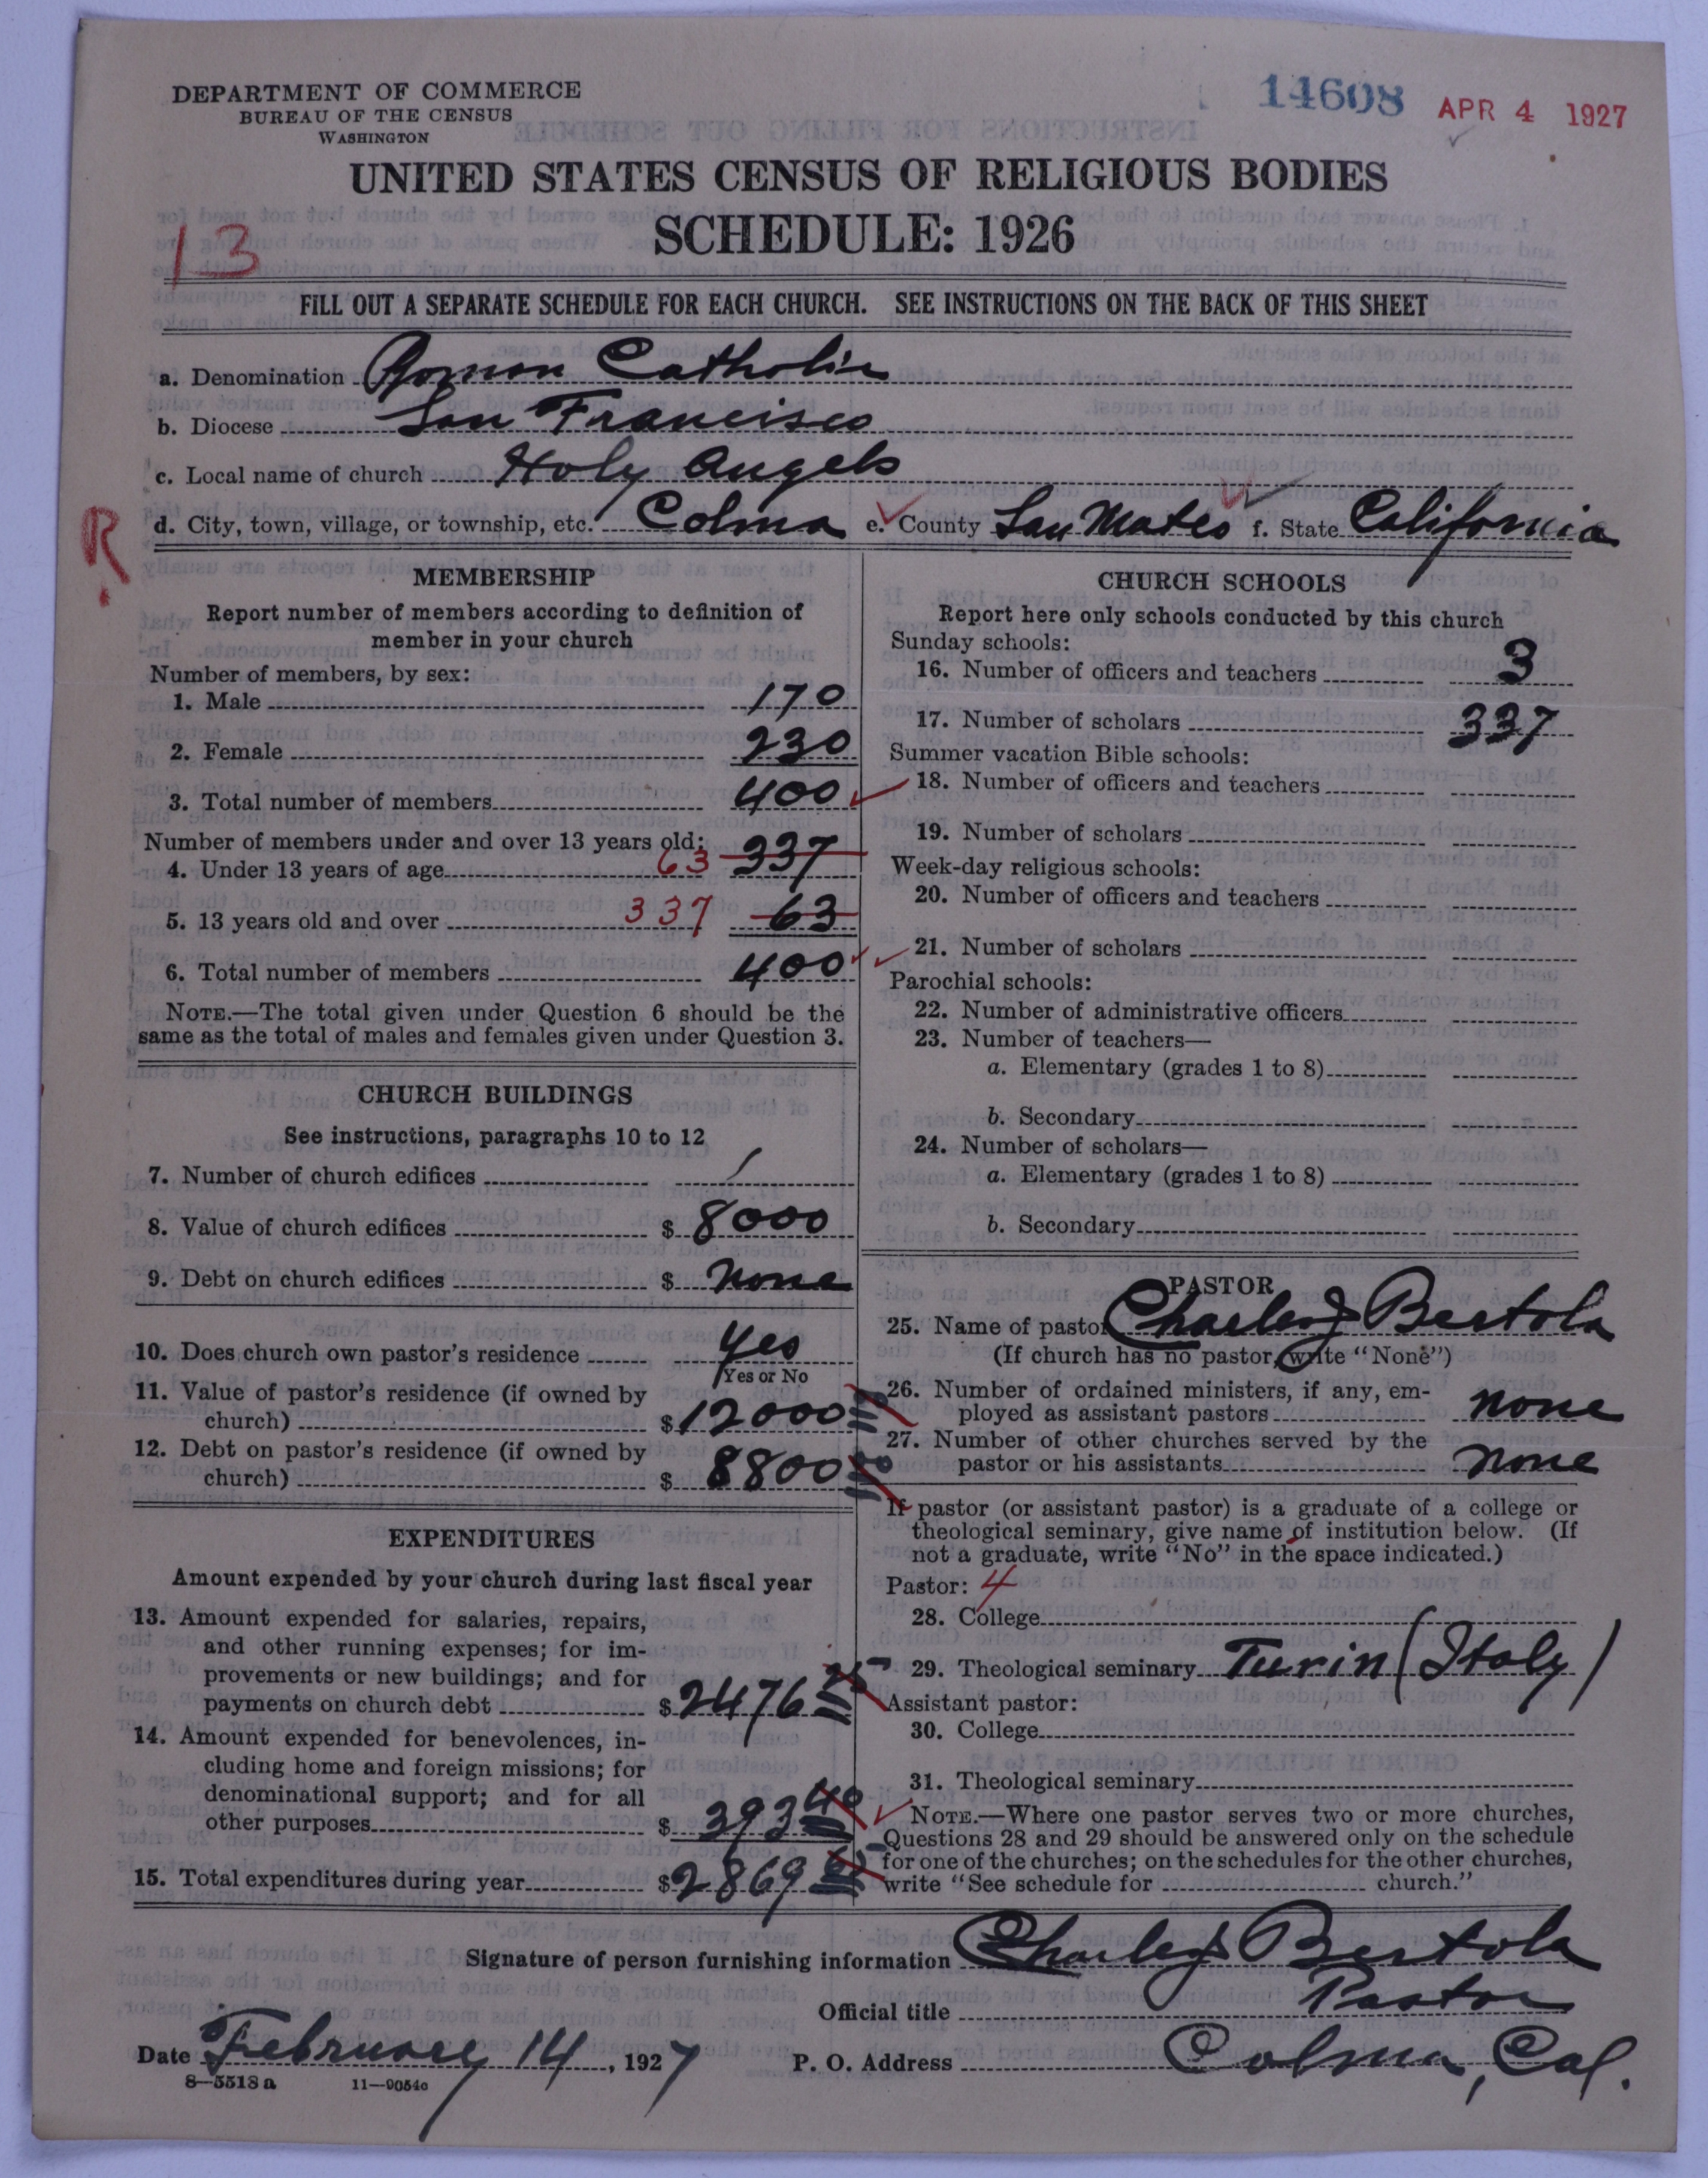 DEPARTMENT OF COMMERCE
BUREAU OF THE CENSUS
WASHINGTON
14608 APR 4 1927
UNITED STATES CENSUS OF RELIGIOUS BODIES
SCHEDULE: 1926
13
FILL OUT A SEPARATE SCHEDULE FOR EACH CHURCH. SEE INSTRUCTIONS ON THE BACK OF THIS SHEET
a. Denomination Roman Catholic
b. Diocese San Francisco
c. Local name of church Holy Angels
R d. City, town, village, or township, etc. Colma e. County San Mateo f. State California
MEMBERSHIP
Report number of members according to definition of
member in your church
Number of members, by sex:
1. Male 170
2. Female 230
3. Total number of members 400
Number of members under and over 13 years old:
4. Under 13 years of age 63 337
5. 13 years old and over 337 63
6. Total number of members 400
NOTE.—The total given under Question 6 should be the
same as the total of males and females given under Question 3.
CHURCH BUILDINGS
See instructions, paragraphs 10 to 12
7. Number of church edifices 1
8. Value of church edifices $ 8000
9. Debt on church edifices $ none
10. Does church own pastor's residence Yes
Yes or No
11. Value of pastor's residence (if owned by
church) $ 12000
12. Debt on pastor's residence (if owned by
church) $ 8800
EXPENDITURES
Amount expended by your church during last fiscal year
13. Amount expended for salaries, repairs,
and other running expenses; for im-
provements or new buildings; and for
payments on church debt $ 2476
14. Amount expended for benevolences, in-
cluding home and foreign missions; for
denominational support; and for all
other purposes $ 393 40
15. Total expenditures during year $ 2869
CHURCH SCHOOLS
Report here only schools conducted by this church
Sunday schools:
16. Number of officers and teachers 3
17. Number of scholars 337
Summer vacation Bible schools:
18. Number of officers and teachers
19. Number of scholars
Week-day religious schools:
20. Number of officers and teachers
21. Number of scholars
Parochial schools:
22. Number of administrative officers
23. Number of teachers—
a. Elementary (grades 1 to 8)
b. Secondary
24. Number of scholars—
a. Elementary (grades 1 to 8)
b. Secondary
PASTOR
25. Name of pastor Charles J Bertola
(If church has no pastor, write "None")
26. Number of ordained ministers, if any, em-
ployed as assistant pastors none
27. Number of other churches served by the
pastor or his assistants none
If pastor (or assistant pastor) is a graduate of a college or
theological seminary, give name of institution below. (If
not a graduate, write "No" in the space indicated.)
Pastor: 4
28. College
29. Theological seminary Turin (Italy)
Assistant pastor:
30. College
31. Theological seminary
NOTE.—Where one pastor serves two or more churches,
Questions 28 and 29 should be answered only on the schedule
for one of the churches; on the schedules for the other churches,
write "See schedule for church."
Signature of person furnishing information Charles J Bertola
Official title Pastor
Date February 14, 1927 P. O. Address Colma, Cal.
8—5518 a 11—9054c